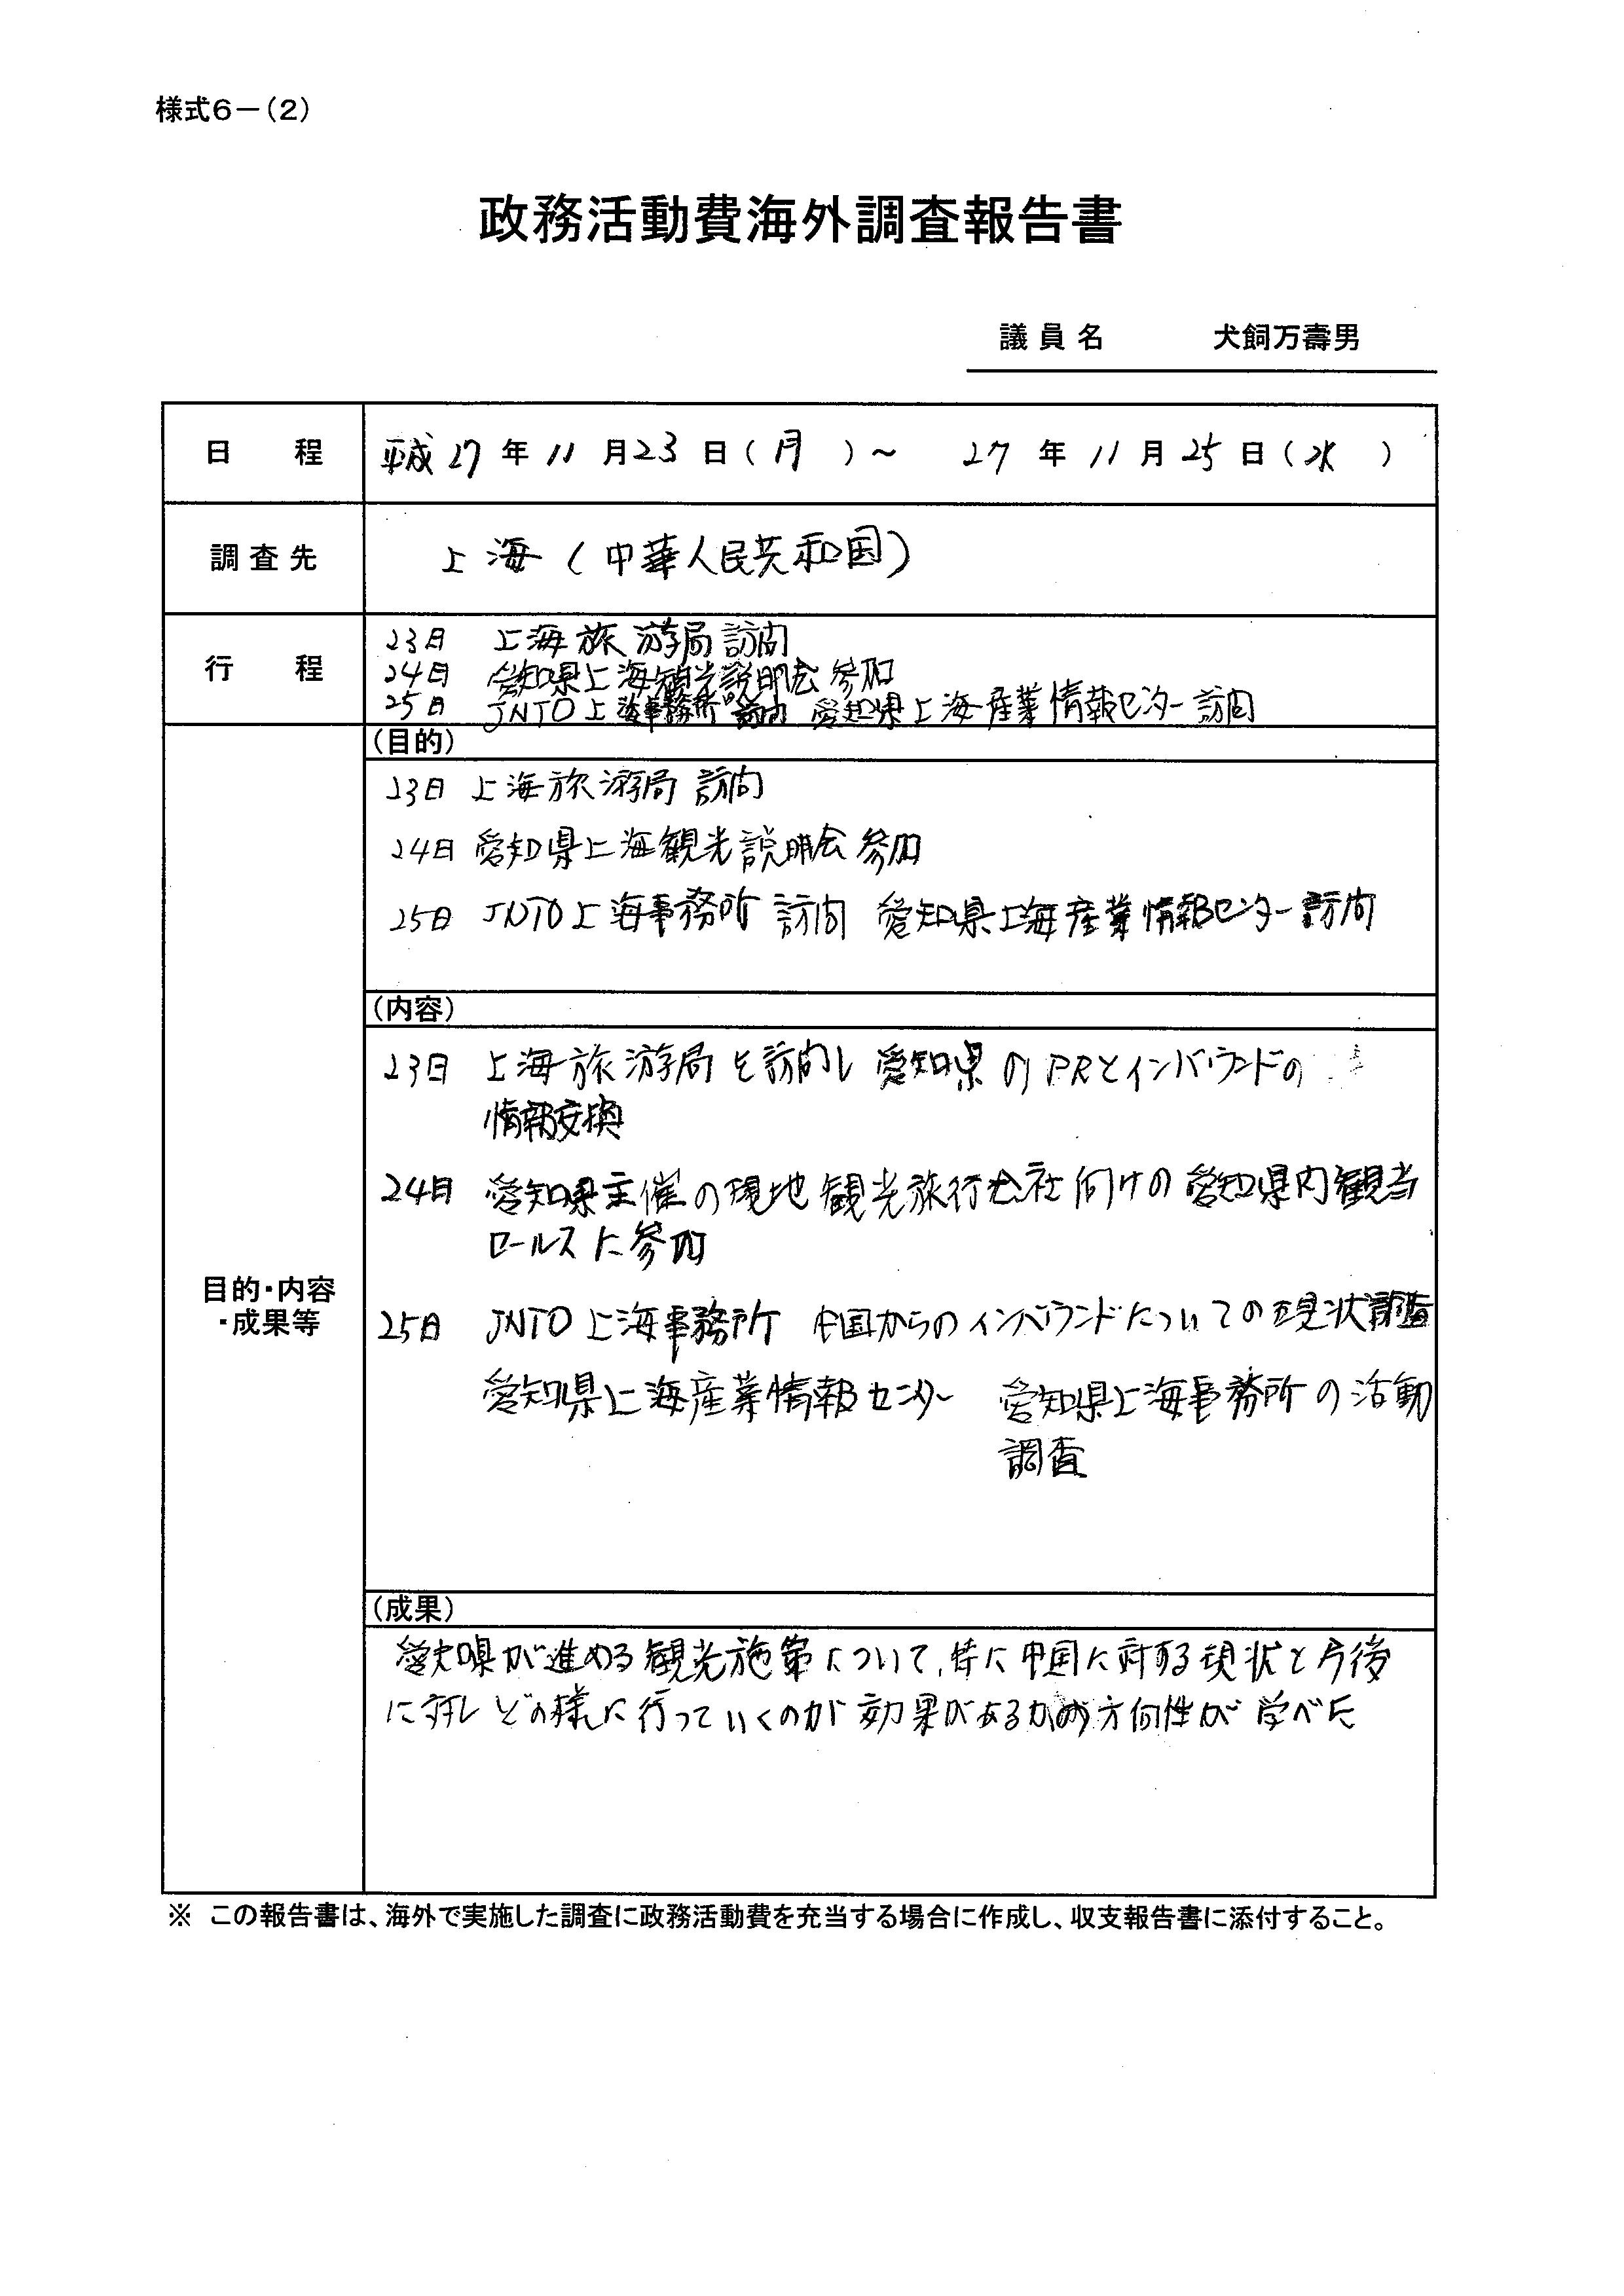 様式6－(2)
政務活動費海外調査報告書
議員名 犬飼万壽男
日程 平成27年11月23日(月)～27年11月25日(水)
調査先 上海(中華人民共和国)
行程
23日 上海旅游局訪問
24日 愛知県上海観光説明会参加
25日 JNTO上海事務所訪問 愛知県上海産業情報センター訪問
(目的)
23日 上海旅游局訪問
24日 愛知県上海観光説明会参加
25日 JNTO上海事務所訪問 愛知県上海産業情報センター訪問
(内容)
23日 上海旅游局を訪問し愛知県のPRとインバウンドの
情報交換
24日 愛知県主催の現地観光旅行会社向けの愛知県内観光
セールスに参加
目的・内容
・成果等
25日 JNTO上海事務所 中国からのインバウンドについての現状調査
愛知県上海産業情報センター 愛知県上海事務所の活動
調査
(成果)
愛知県が進める観光施策について、特に中国に対する現状と今後
に対しどの様に行っていくのが効果があるかの方向性が学べた
※ この報告書は、海外で実施した調査に政務活動費を充当する場合に作成し、収支報告書に添付すること。